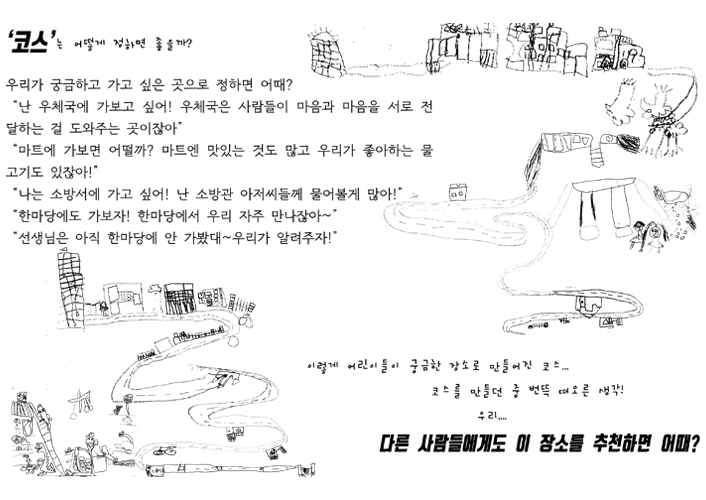 ‘코스’는 어떻게 정하면 좋을까?
우리가 궁금하고 가고 싶은 곳으로 정하면 어때?
“난 우체국에 가보고 싶어! 우체국은 사람들이 마음과 마음을 서로 전
달하는 걸 도와주는 곳이잖아”
“마트에 가보면 어떨까? 마트엔 맛있는 것도 많고 우리가 좋아하는 물
고기도 있잖아!”
“나는 소방서에 가고 싶어! 난 소방관 아저씨들께 물어볼게 많아!”
“한마당에도 가보자! 한마당에서 우리 자주 만나잖아~”
“선생님은 아직 한마당에 안 가봤대~우리가 알려주자!”
이렇게 어린이들이 궁금한 장소로 만들어진 코스...
코스를 만들던 중 번뜩 떠오른 생각!
우리....
다른 사람들에게도 이 장소를 추천하면 어때?